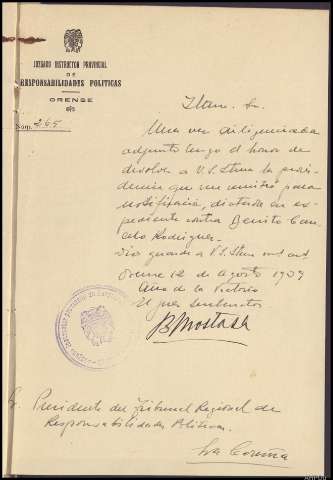 JUZGADO INSTRUCTOR PROVINCIAL
DE
RESPONSABILIDADES POLITICAS
ORENSE
Núm. 265
Iltmo. Sr.
Una vez diligenciada
adjunto tengo el honor de
devolver a V.S. Iltma la provi-
dencia que me remitió para
notificación, dictada en ex-
pediente contra Benito Can-
Rodríguez.
Dios guarde a V.S. Iltma
Orense 12 de Agosto 1939
Año de la Victoria
El Juez Instructor
Presidente del Tribunal Regional de
Responsabilidades Políticas.
La Coruña